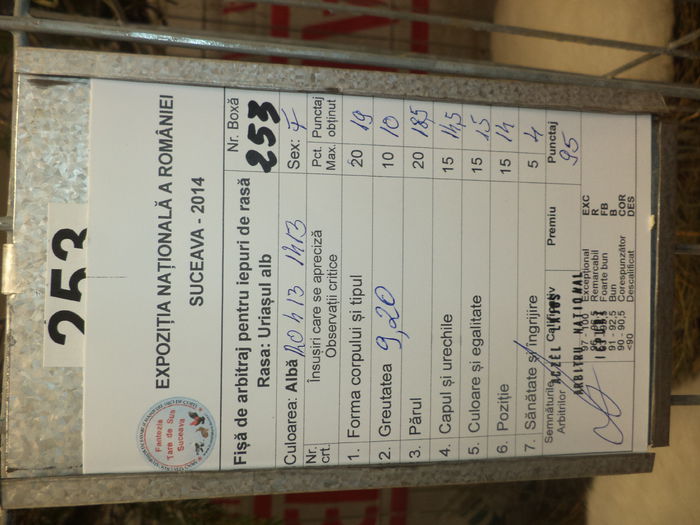 253
EXPOZIȚIA NAȚIONALĂ A ROMÂNIEI
SUCEAVA - 2014
Fantezia
Tara de Sus
Suceava
Fișă de arbitraj pentru iepuri de rasă
Rasa: Uriașul alb
Nr. Boxă
253
Culoarea: Albă
Sex: F
Nr. crt. Însușiri care se apreciză Observații critice Pct. Max. Punctaj obținut
1. Forma corpului și tipul 20 19
2. Greutatea 9,20 10 10
3. Părul 20 18,5
4. Capul și urechile 15 14,5
5. Culoare și egalitate 15 15
6. Poziție 15 14
7. Sănătate și îngrijire 5 4
Semnăturile Arbitrilor Calificativ Premiu Punctaj
95
ARBITRU NATIONAL
97 - 100 Excepțional EXC
Remarcabil R
Foarte bun FB
91 - 92,5 Bun B
90 - 90,5 Corespunzător COR
<90 Descalificat DES